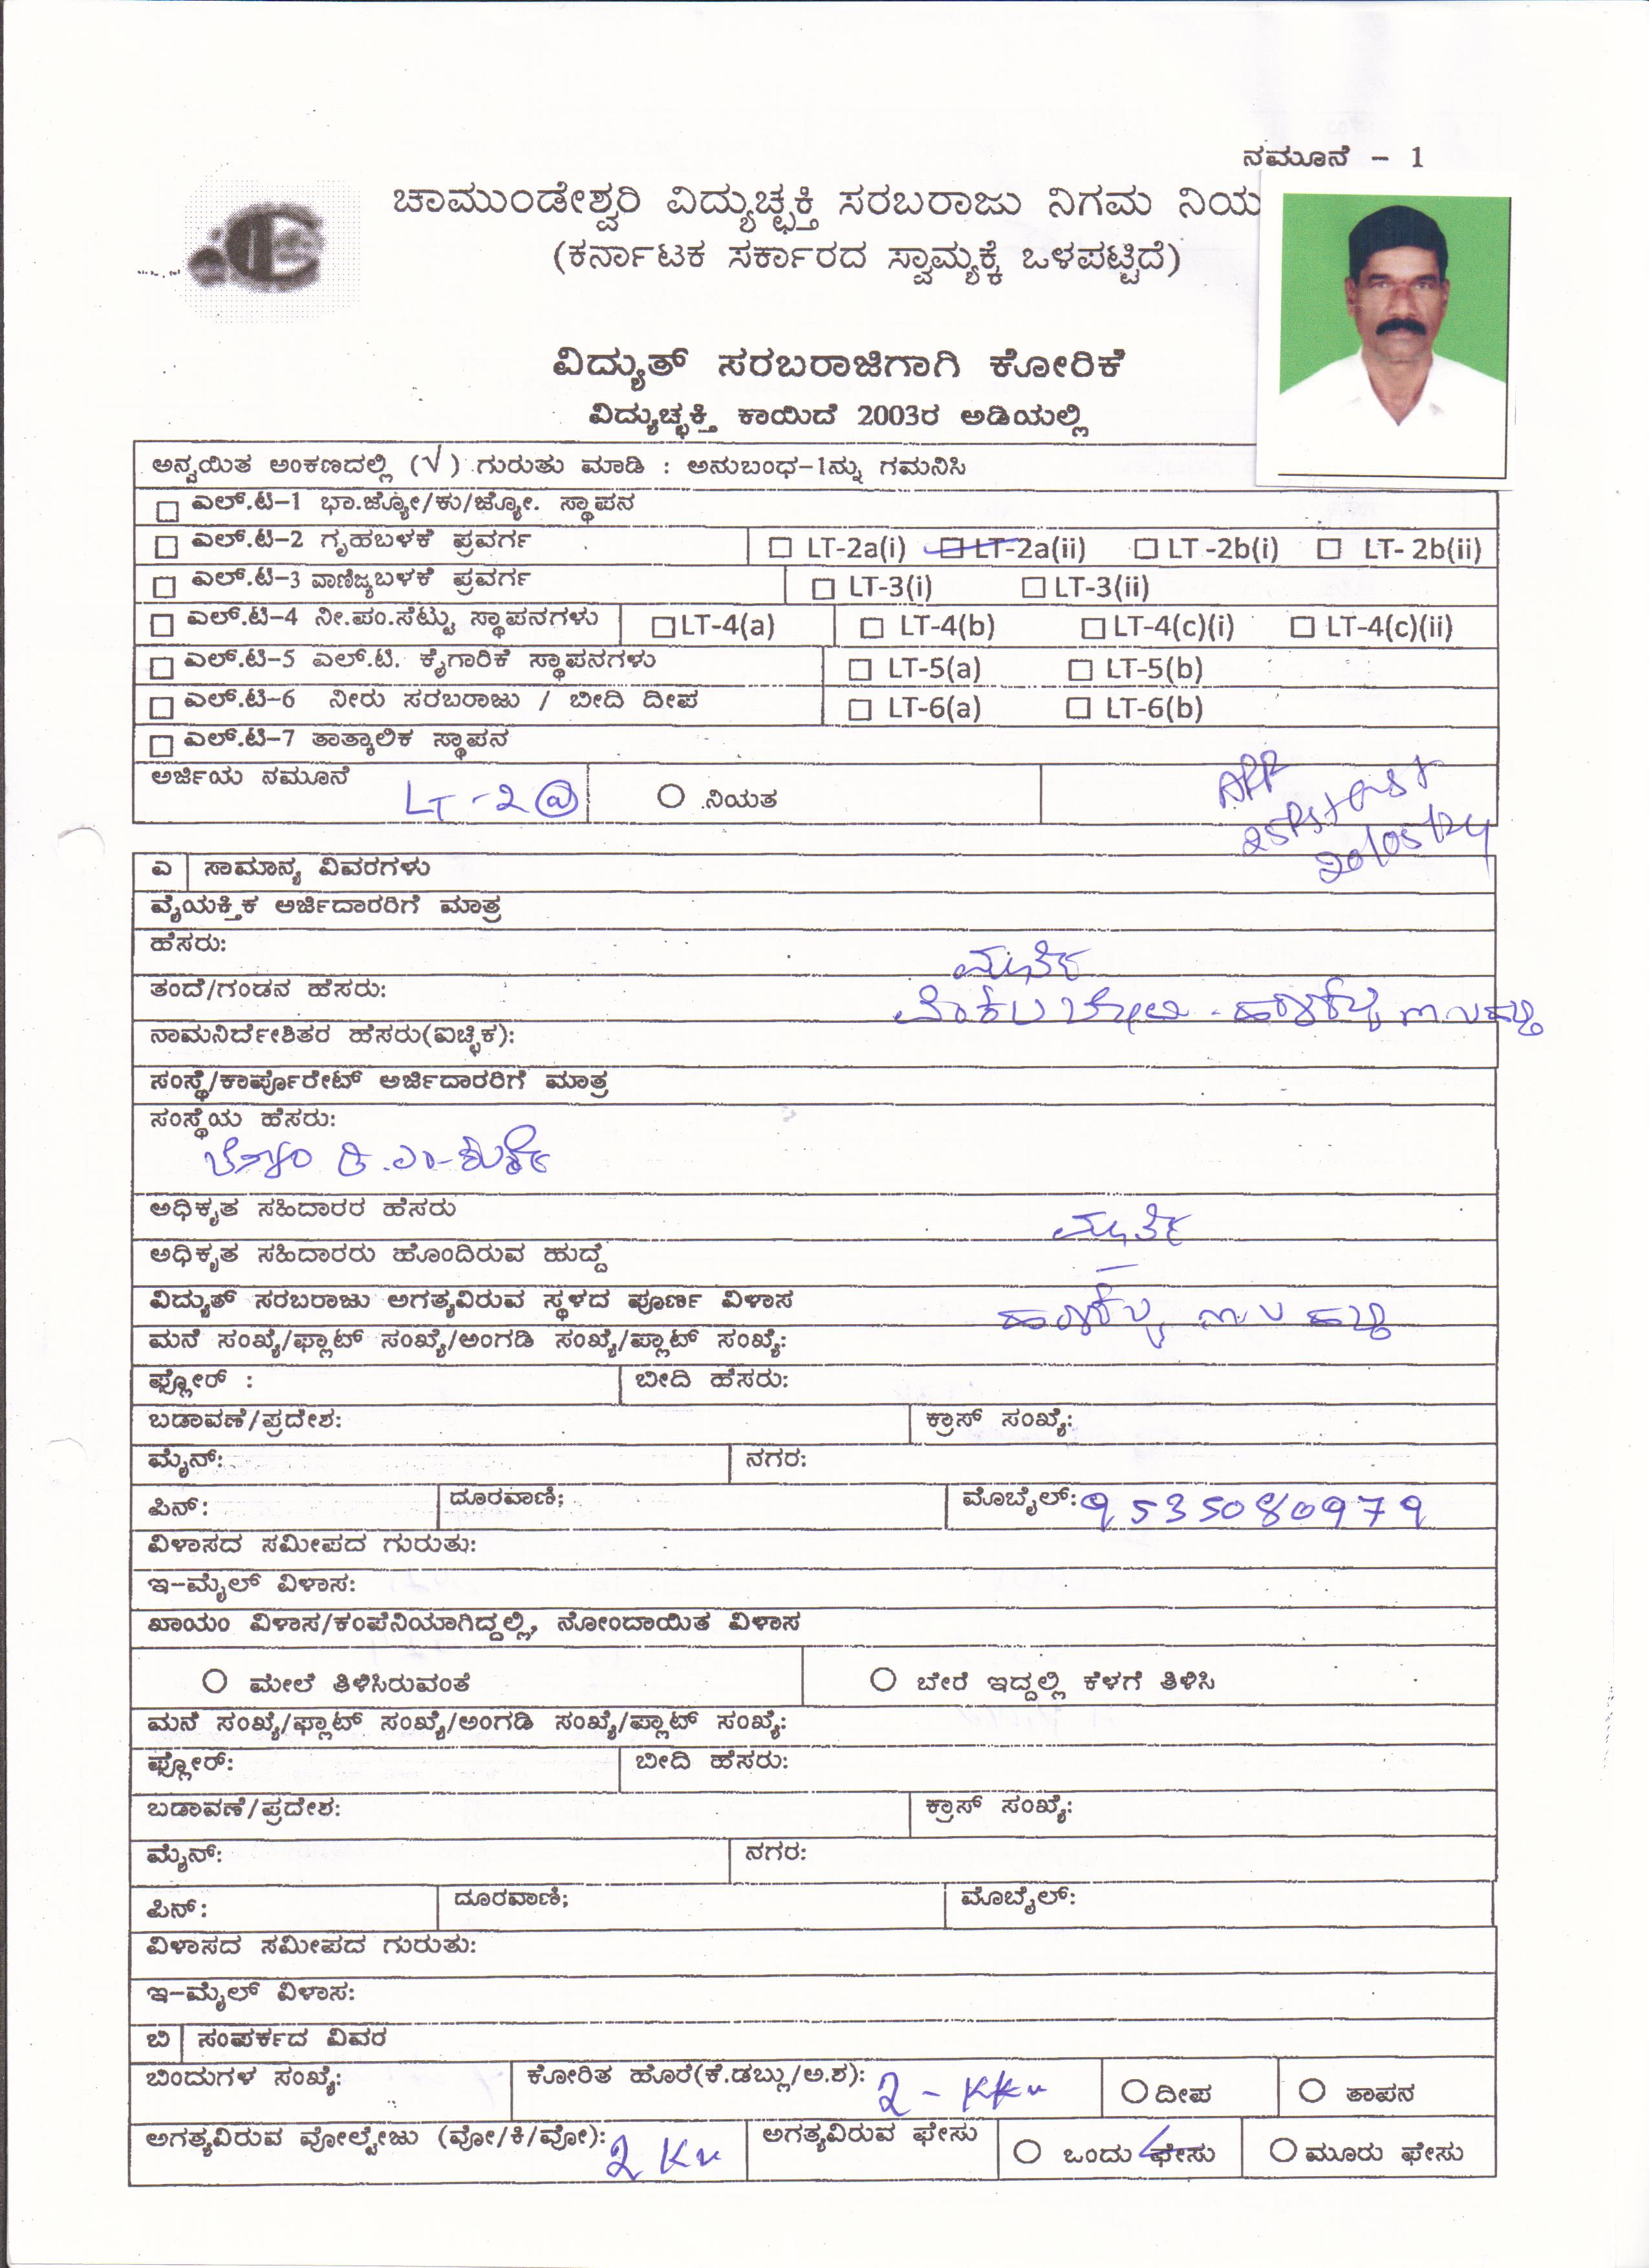 ನಮೂನೆ - 1
ಚಾಮುಂಡೇಶ್ವರಿ ವಿದ್ಯುಚ್ಛಕ್ತಿ ಸರಬರಾಜು ನಿಗಮ ನಿಯ
(ಕರ್ನಾಟಕ ಸರ್ಕಾರದ ಸ್ವಾಮ್ಯಕ್ಕೆ ಒಳಪಟ್ಟಿದೆ)
ವಿದ್ಯುತ್ ಸರಬರಾಜಿಗಾಗಿ ಕೋರಿಕೆ
ವಿದ್ಯುಚ್ಛಕ್ತಿ ಕಾಯಿದೆ 2003ರ ಅಡಿಯಲ್ಲಿ
ಅನ್ವಯಿತ ಅಂಕಣದಲ್ಲಿ (√) ಗುರುತು ಮಾಡಿ : ಅನುಬಂಧ-1ನ್ನು ಗಮನಿಸಿ
ಎಲ್.ಟಿ-1 ಭಾ.ಜ್ಯೋ/ಕು/ಜ್ಯೋ. ಸ್ಥಾಪನ
ಎಲ್.ಟಿ-2 ಗೃಹಬಳಕೆ ಪ್ರವರ್ಗ LT-2a(i) LT-2a(ii) LT -2b(i) LT- 2b(ii)
ಎಲ್.ಟಿ-3 ವಾಣಿಜ್ಯಬಳಕೆ ಪ್ರವರ್ಗ LT-3(i) LT-3(ii)
ಎಲ್.ಟಿ-4 ನೀ.ಪಂ.ಸೆಟ್ಟು ಸ್ಥಾಪನಗಳು LT-4(a) LT-4(b) LT-4(c)(i) LT-4(c)(ii)
ಎಲ್.ಟಿ-5 ಎಲ್.ಟಿ. ಕೈಗಾರಿಕೆ ಸ್ಥಾಪನಗಳು LT-5(a) LT-5(b)
ಎಲ್.ಟಿ-6 ನೀರು ಸರಬರಾಜು / ಬೀದಿ ದೀಪ LT-6(a) LT-6(b)
ಎಲ್.ಟಿ-7 ತಾತ್ಕಾಲಿಕ ಸ್ಥಾಪನ
ಅರ್ಜಿಯ ನಮೂನೆ LT-2(a) ನಿಯತ
20/05/24
ಎ ಸಾಮಾನ್ಯ ವಿವರಗಳು
ವೈಯಕ್ತಿಕ ಅರ್ಜಿದಾರರಿಗೆ ಮಾತ್ರ
ಹೆಸರು: ಮೂರ್ತಿ
ತಂದೆ/ಗಂಡನ ಹೆಸರು:
ನಾಮನಿರ್ದೇಶಿತರ ಹೆಸರು(ಐಚ್ಛಿಕ):
ಸಂಸ್ಥೆ/ಕಾರ್ಪೊರೇಟ್ ಅರ್ಜಿದಾರರಿಗೆ ಮಾತ್ರ
ಸಂಸ್ಥೆಯ ಹೆಸರು:
ಅಧಿಕೃತ ಸಹಿದಾರರ ಹೆಸರು ಮೂರ್ತಿ
ಅಧಿಕೃತ ಸಹಿದಾರರು ಹೊಂದಿರುವ ಹುದ್ದೆ
ವಿದ್ಯುತ್ ಸರಬರಾಜು ಅಗತ್ಯವಿರುವ ಸ್ಥಳದ ಪೂರ್ಣ ವಿಳಾಸ
ಮನೆ ಸಂಖ್ಯೆ/ಫ್ಲಾಟ್ ಸಂಖ್ಯೆ/ಅಂಗಡಿ ಸಂಖ್ಯೆ/ಪ್ಲಾಟ್ ಸಂಖ್ಯೆ:
ಫ್ಲೋರ್ : ಬೀದಿ ಹೆಸರು:
ಬಡಾವಣೆ/ಪ್ರದೇಶ: ಕ್ರಾಸ್ ಸಂಖ್ಯೆ:
ಮೈನ್: ನಗರ:
ಪಿನ್: ದೂರವಾಣಿ; ಮೊಬೈಲ್: 9535080979
ವಿಳಾಸದ ಸಮೀಪದ ಗುರುತು:
ಇ-ಮೈಲ್ ವಿಳಾಸ:
ಖಾಯಂ ವಿಳಾಸ/ಕಂಪೆನಿಯಾಗಿದ್ದಲ್ಲಿ, ನೋಂದಾಯಿತ ವಿಳಾಸ
ಮೇಲೆ ತಿಳಿಸಿರುವಂತೆ ಬೇರೆ ಇದ್ದಲ್ಲಿ ಕೆಳಗೆ ತಿಳಿಸಿ
ಮನೆ ಸಂಖ್ಯೆ/ಫ್ಲಾಟ್ ಸಂಖ್ಯೆ/ಅಂಗಡಿ ಸಂಖ್ಯೆ/ಪ್ಲಾಟ್ ಸಂಖ್ಯೆ:
ಫ್ಲೋರ್: ಬೀದಿ ಹೆಸರು:
ಬಡಾವಣೆ/ಪ್ರದೇಶ: ಕ್ರಾಸ್ ಸಂಖ್ಯೆ:
ಮೈನ್: ನಗರ:
ಪಿನ್: ದೂರವಾಣಿ; ಮೊಬೈಲ್:
ವಿಳಾಸದ ಸಮೀಪದ ಗುರುತು:
ಇ-ಮೈಲ್ ವಿಳಾಸ:
ಬಿ ಸಂಪರ್ಕದ ವಿವರ
ಬಿಂದುಗಳ ಸಂಖ್ಯೆ: ಕೋರಿತ ಹೊರೆ(ಕೆ.ಡಬ್ಲ್ಯು/ಅ.ಶ): 2 - ದೀಪ ತಾಪನ
ಅಗತ್ಯವಿರುವ ವೋಲ್ಟೇಜು (ವೋ/ಕಿ/ವೋ): 2 ಅಗತ್ಯವಿರುವ ಫೇಸು ಒಂದು ಫೇಸು ಮೂರು ಫೇಸು